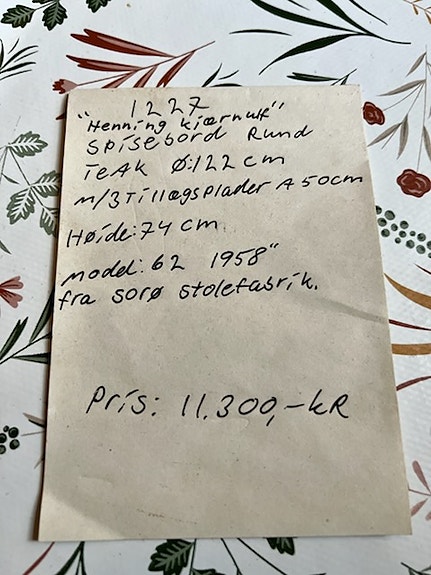 1227
"Henning kjærnulf"
Spisebord Rund
TeAk Ø:122 cm
m/3 Tillægsplader A 50cm
Høide: 74 cm.
model: 62 1958"
fra sorø stolefabrik.
Pris: 11.300,-kR